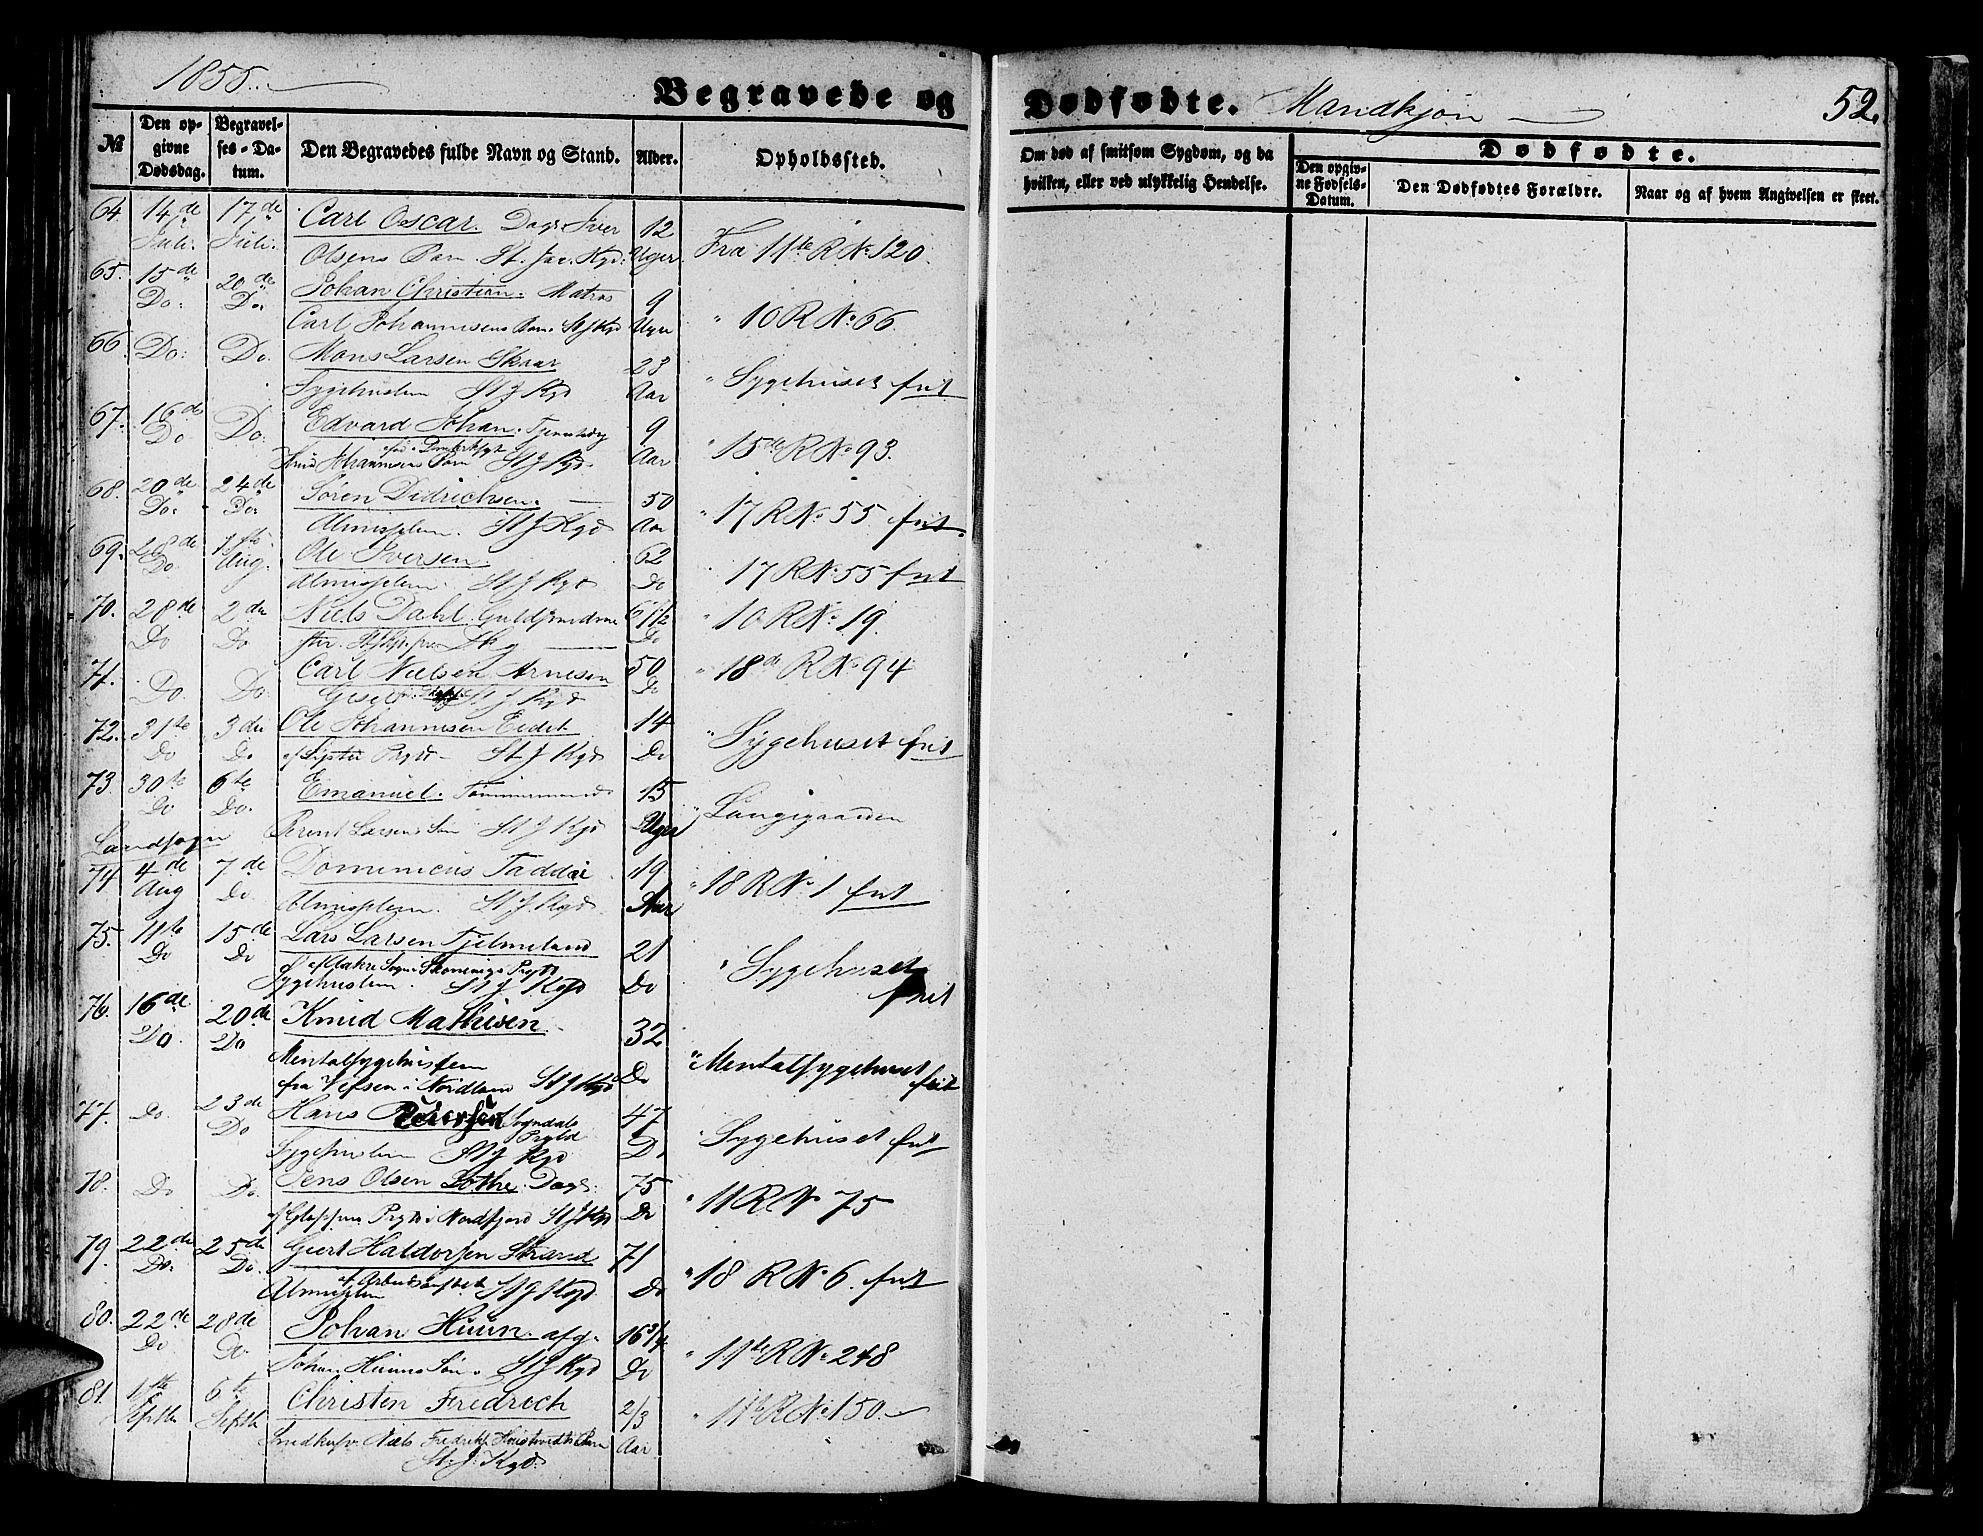 1855.
Begravede og
Dødfødte. Mandkjøn
52.
№
Den opgivne Dødsdag.
Begravelses-Datum.
Den Begravedes fulde Navn og Stand.
Alder.
Opholdssted.
Om død af smitsom Sygdom, og da
hvilken, eller ved ulykkelig Hendelse.
Dødfødte.
Den opgivne Fødsels-Datum.
Den Dødfødtes Forælbre.
Naar og af hvem Angivelsen er skeet.
64. 14de 17de Carl Oscar. Dagr Iver 12 Fra 11te R No 120.
Juli Juli Olsens Barn. St. Jac. Kgd. Uger
65. 15de 20de Johan Christian. Matros 9 " 10 R No 66
Do: Do: Carl Johannesens Barn. St J Kgd Uger
66. Do: Do. Mons Larsen Skaar 23 " Sygehuset frit
Sygehuslem St J Kgd Aar
67. 16de Do. Edvard Johan. 9 " 15de R No 93.
Do Knud Johannesens Barn St J Kgd. Aar
68. 20de 24de Søren Didrichsen. 50 " 17 R No 55 frit
Do: Do: Almisselem. St J Kgd Aar
69. 28de 1ste Ole Iversen. 62 " 17 R No 55 frit
Do Aug. Almisselem. St J Kgd Do
70. 28de 2den Niels Dahl. Guldsmedsve 61/2 " 10 R No 19.
Do Do
71. Do. Do. Carl Nielsen Arnesen 50 " 18de R No 94
St J Kgd Do
72. 31te 3die Ole Johannesen Eidet 14 " Sygehuset frit
Do Do St J Kgd Do
73. 30te 6te Emanuel. Tømmermand 15 " Lungegaarden
Do Do. Berent Larsens Søn St J Kgd Uger
Landsogn
74. 4de 7de Dominicus Taddæi 19 " 18 R No 1 frit
Aug Do. Almisselem. St. J. Kgd. Aar
75. 11te 15de Lars Larsen Tjelmeland 21 " Sygehuset
Do Do Sygehuslem. St J Kgd Do frit
76. 16de 20de Knud Mathisen 32
Do. Do Mentalsygehuslem Do " Mentalsygehuset
fra Vefsen i Nordland St J Kgd frit
77. Do. 23de Hans Petersen Sogndals 47 " Sygehuset frit
Do Prgld
Sygehuslem St J Kgd Do
78. Do Do. Jens Olsen Lothe. Dagr. 75 " 11 R No 75
af Gloppens Prgld i Nordfjord St J Kgd Do
79. 22de 25de Geert Haldorsen Strand 71 " 18 R No 6. frit
Do: Do. Almisselem St J Kgd. Do
80. 22de 28de Johan Huun. afg. 16 3/4 " 11te R No 248
Do Do. Johan Huuns Søn. St J Kgd Do
81. 1ste 6te Christen Fredrech 2/3 " 11te R No 150.
Septbr Septbr Smedsv. Niels Fredrik Barn Aar
St. J. Kgd.